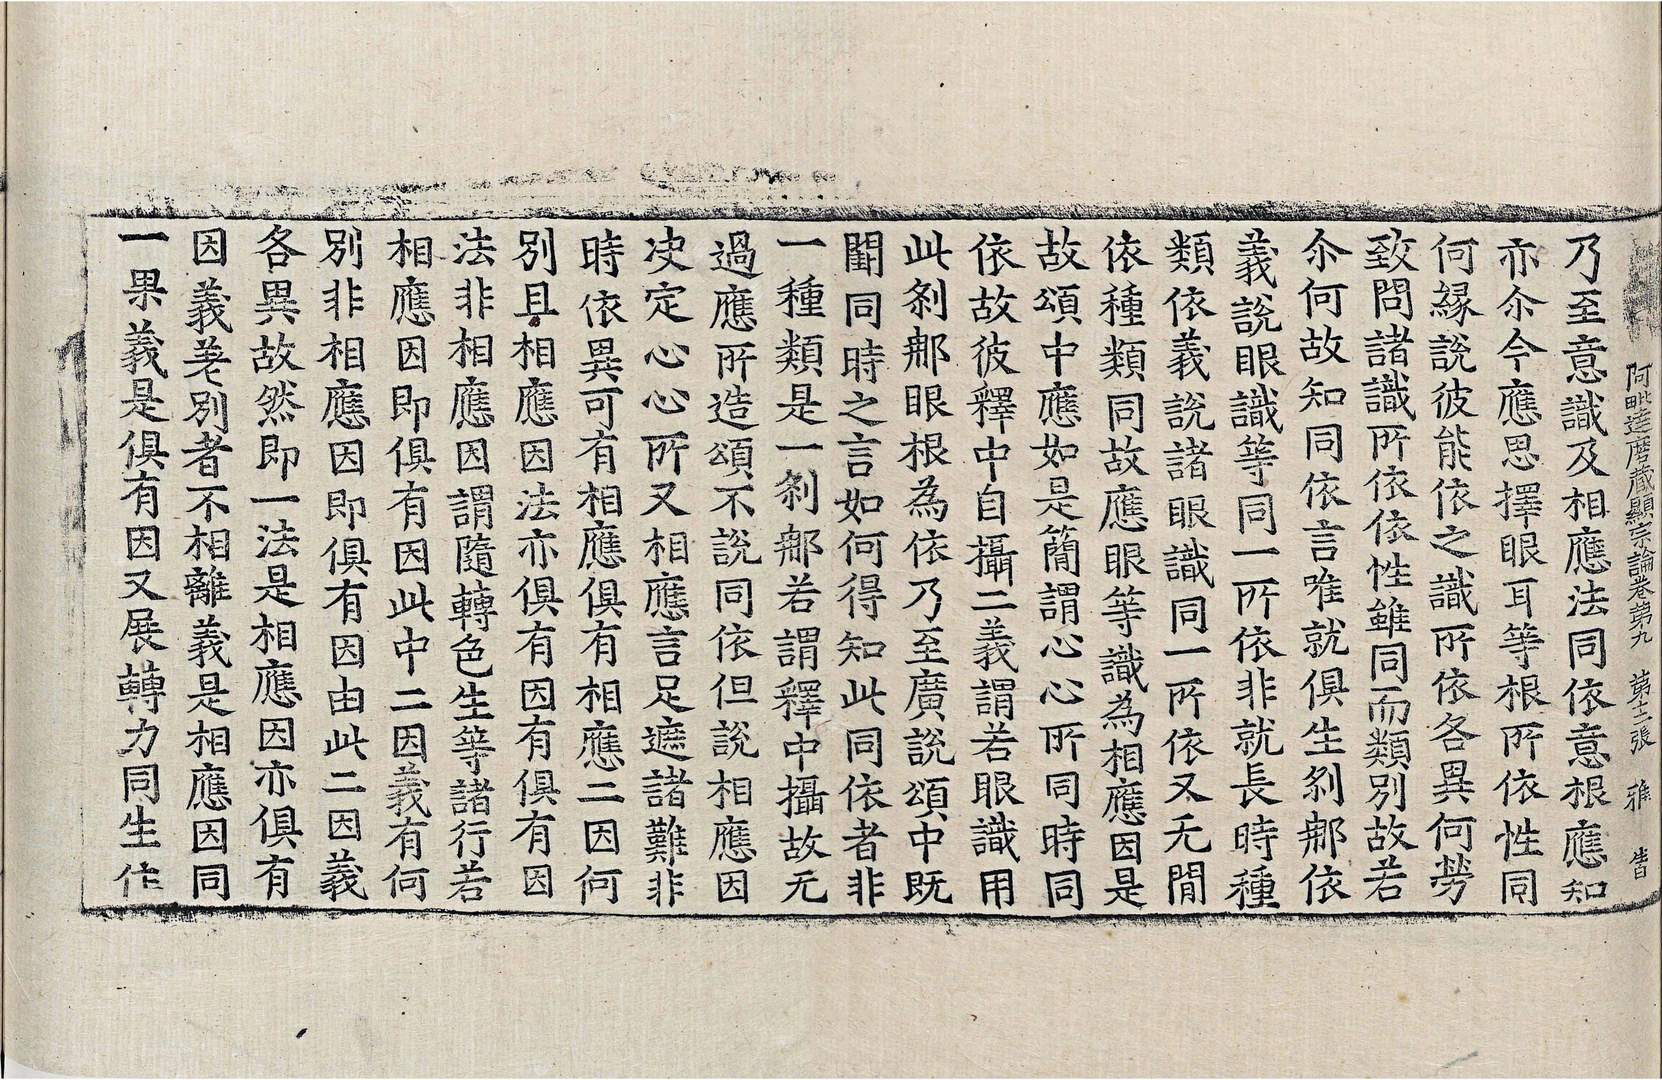 阿毗達磨藏顯宗論卷第九 第十二張 雅
乃至意識及相應法同依意根應知
亦尒今應思擇眼耳等根所依性同
何緣說彼能依之識所依各異何勞
致問諸識所依依性雖同而類別故若
尒何故知同依言唯就俱生剎那依
義說眼識等同一所依非就長時種
類依義說諸眼識同一所依又无閒
依種類同故應眼等識為相應因是
故頌中應如是簡謂心心所同時同
依故彼釋中自攝二義謂若眼識用
此剎那眼根為依乃至廣說頌中既
闕同時之言如何得知此同依者非
一種類是一剎那若謂釋中攝故无
過應所造頌不說同依但說相應因
决定心心所又相應言足遮諸難非
時依異可有相應俱有相應二因何
別且相應因法亦俱有因有俱有因
法非相應因謂隨轉色生等諸行若
相應因即俱有因此中二因義有何
別非相應因即俱有因由此二因義
各異故然即一法是相應因亦俱有
因義差別者不相離義是相應因同
一果義是俱有因又展轉力同生作